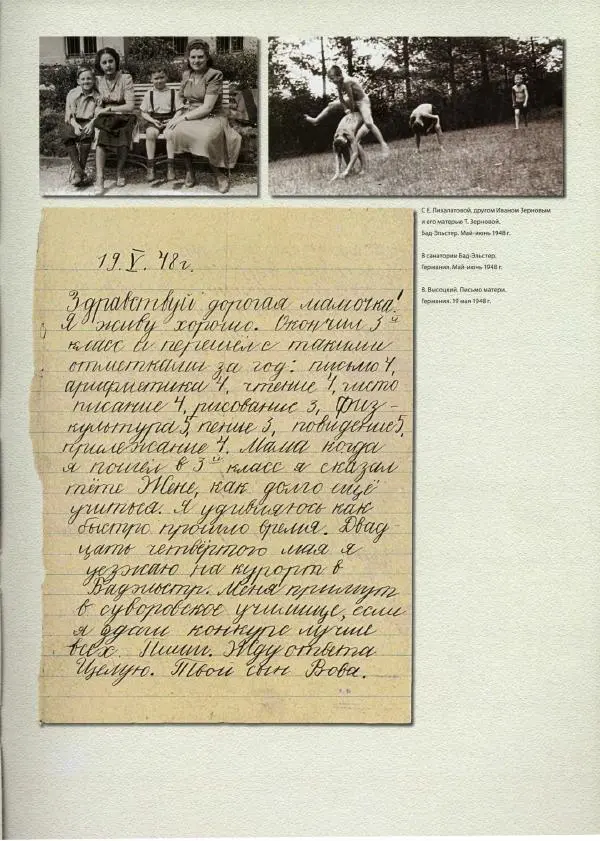 С Е. Лихалатовой, другом Иваном Зерновым
и его матерью Т. Зерновой.
Бад-Эльстер. Май-июнь 1948 г.
В санатории Бад-Эльстер.
Германия. Май-июнь 1948 г.
В. Высоцкий. Письмо матери.
Германия. 19 мая 1948 г.
19.V.48г.
Здравствуй дорогая мамочка!
Я живу хорошо. Окончил 3й
класс и перешёл с такими
отметками за год: письмо 4,
арифметика 4, чтение 4, чисто
писание 4, рисование 3, физ-
культура 5, пение 3, повидение 5,
прилежание 4. Мама когда
я пошёл в 3й класс я сказал
тёте Жене, как долго ещё
учиться. Я удивляюсь как
быстро прошло время. Двад-
цать четвёртого мая я
уезжаю на курорт в
Бадэльстр. Меня примут
в суворовское училище, если
я сдам конкурс лучше
всех. Пиши. Жду ответа
Целую. Твой сын Вова.